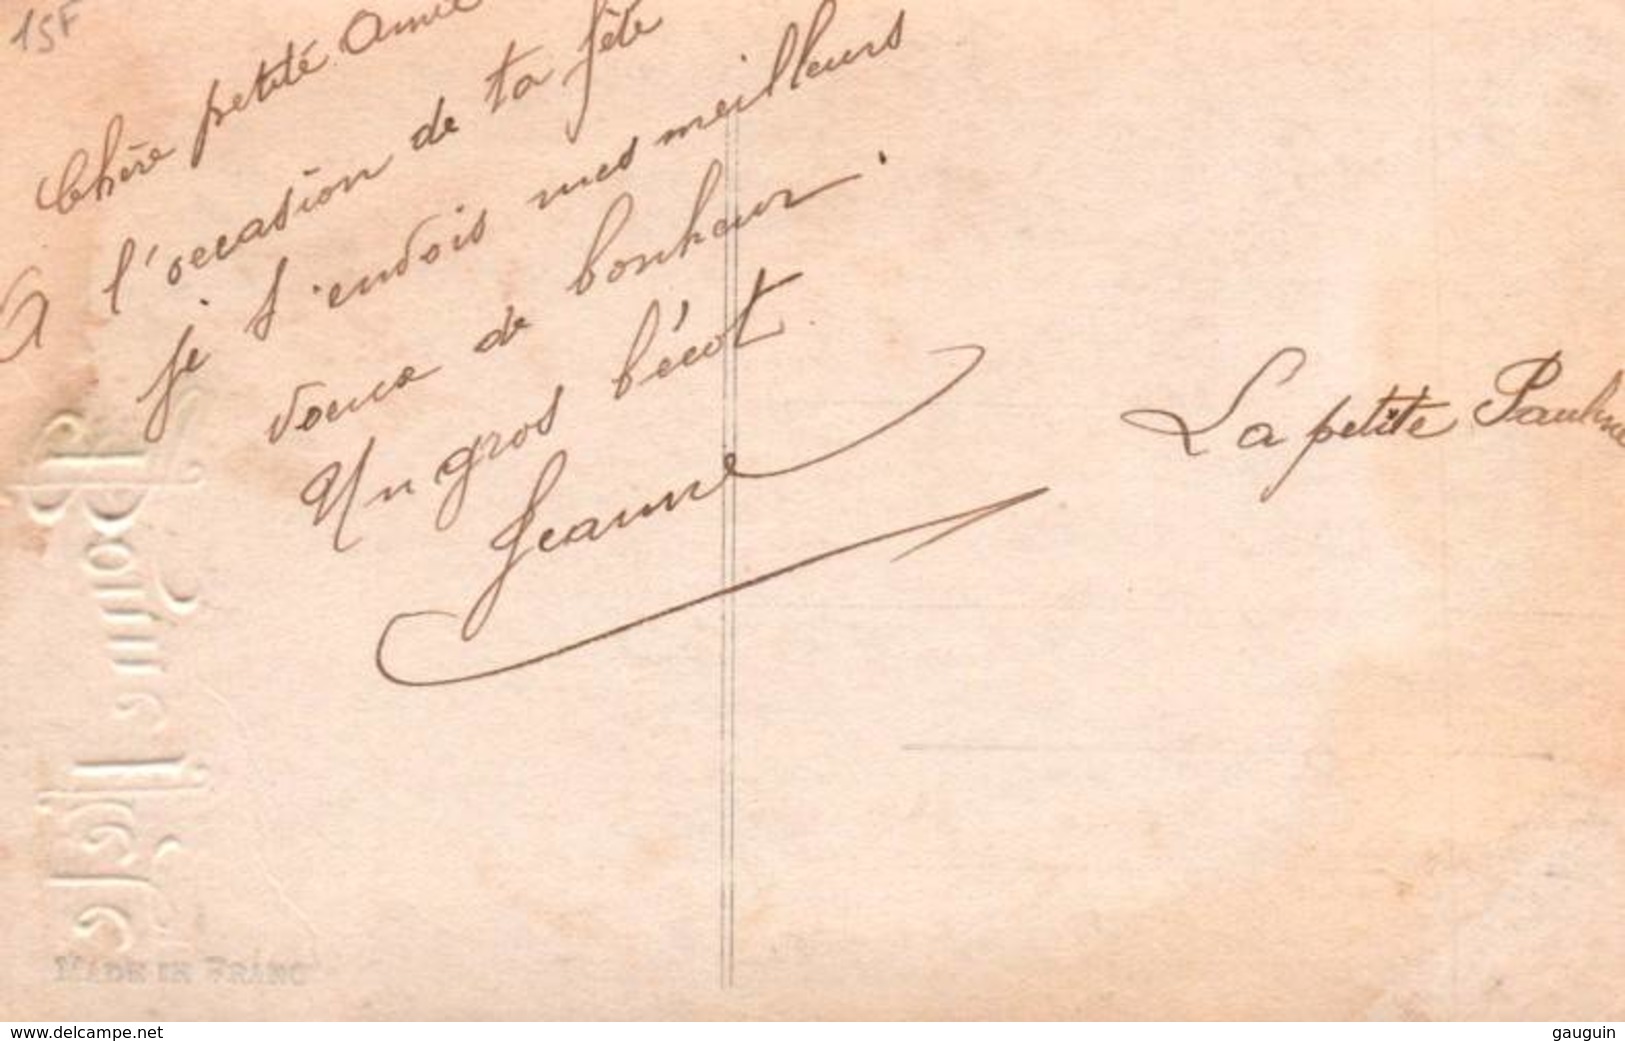 15F
Chère petite Amie
A l'occasion de ta fête
je t'envois mes meilleurs
voeux de bonheur.
Un gros bécot
Jeanne
La petite Pauline
Bonne Fête
MADE IN FRANC
www.delcampe.net
gauguin